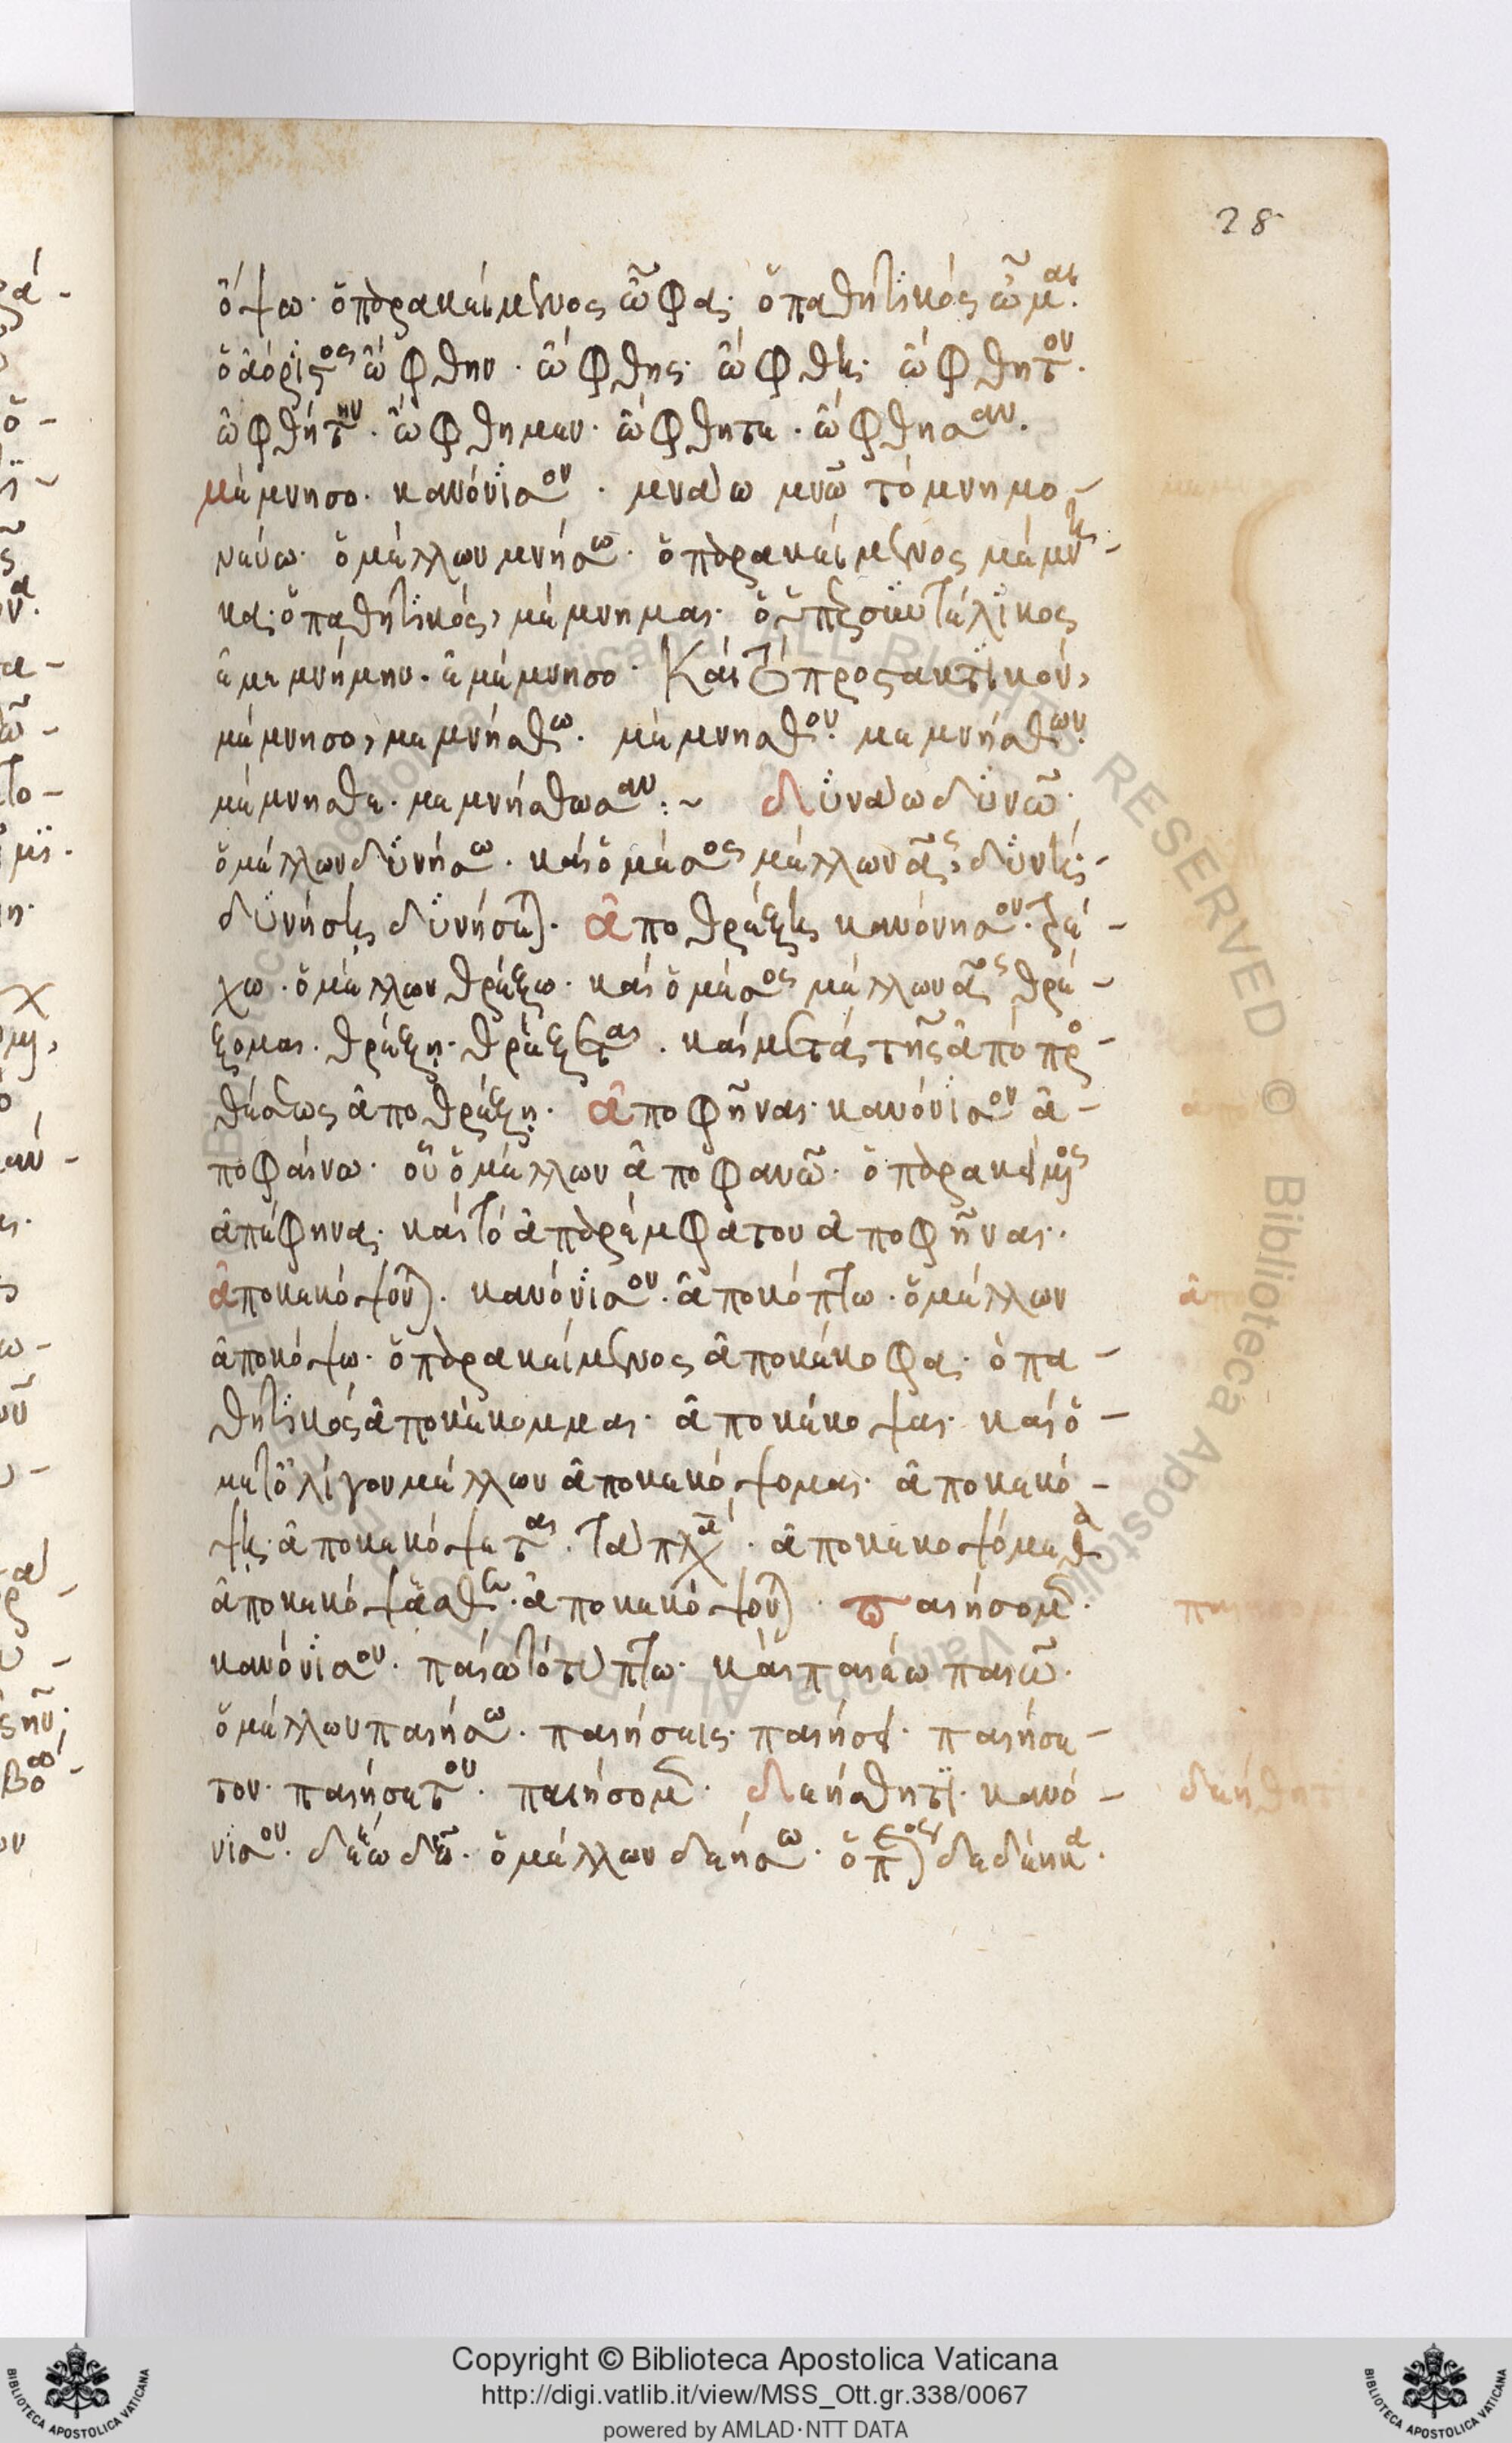 28
ὄψω· ὁ παρακείμενος ὦφα· ὁ παθητικός ὦμαι·
ὁ ἀόριστος ὤφθην· ὤφθης· ὤφθη· ὤφθητον·
ὠφθήτην· ὤφθημεν· ὤφθητε· ὤφθησαν.
μέμνησο· κανόνισον· μνάω μνῶ τό μνημο-
νεύω· ὁ μέλλων μνήσω· ὁ παρακείμενος μέμνη-
κα· ὁ παθητικός, μέμνημαι· ὁ ὑπερσυντέλικος
ἐμεμνήμην· ἐμέμνησο· Καί τό προστακτικόν,
μέμνησο, μεμνήσθω· μέμνησθον· μεμνήσθων·
μέμνησθε· μεμνήσθωσαν:~ δϋνάω δϋνῶ·
ὁ μέλλων δϋνήσω· καί ὁ μέσος μέλλων
δϋνήσῃ δϋνήσεται· ἀποθρέξεις κανόνησον· τρέ-
χω· ὁ μέλλων θρέξω· καί ὁ μέσος μέλλων θρέ-
ξομαι· θρέξῃ· θρέξεται· καί μετά τῆς ἀπό προ-
θέσεως ἀποθρέξῃ· ἀποφῆναι· κανόνισον ἀ-
ποφαίνω· οὗ ὁ μέλλων ἀποφανῶ· ὁ παρακείμενος
ἀπέφηνα· καί τό ἀπαρέμφατον ἀποφῆναι·
ἀποκεκόψονται· κανόνισον· ἀποκόπτω· ὁ μέλλων
ἀποκόψω· ὁ παρακείμενος ἀποκέκοφα· ὁ πα-
θητικός ἀποκέκομμαι· ἀποκέκοψαι· καί ὁ
μετ ὀλίγον μέλλων ἀποκεκόψομαι· ἀποκεκό-
ψῃ· ἀποκεκόψεται· τά πλ· ἀποκεκοψόμεθα
ἀποκεκόψεσθε· ἀποκεκόψονται· παιήσομεν·
κανόνισον· παίω τό τύπτω· καί παιέω παιῶ·
ὁ μέλλων παιήσω· παιήσεις· παιήσει· παιήσε-
τον· παιήσετον· παιήσομεν· δεήθητι· κανό-
νισον· δεέω δεῶ· ὁ μέλλων δεήσω· ὁ π δεδέηκα·
Copyright © Biblioteca Apostolica Vaticana
http://digi.vatlib.it/view/MSS_Ott.gr.338/0067
powered by AMLAD·NTT DATA